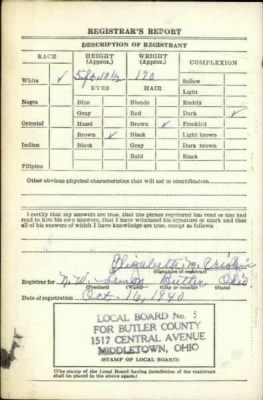 REGISTRAR'S REPORT
DESCRIPTION OF REGISTRANT
RACE HEIGHT (Approx.) WEIGHT (Approx.) COMPLEXION
White ✓ 5 ft 10 1/2 170 Sallow
EYES HAIR Light
Negro Blue Blonde Ruddy
Gray Red Dark ✓
Oriental Hazel Brown ✓ Freckled
Brown ✓ Black Light brown
Indian Black Gray Dark brown
Bald Black
Filipino
Other obvious physical characteristics that will aid in identification
I certify that my answers are true; that the person registered has read or has had
read to him his own answers; that I have witnessed his signature or mark and that
all of his answers of which I have knowledge are true, except as follows:
Elizabeth M.
(Signature of registrar)
Registrar for Butler Ohio
(Precinct) (Ward) (City or county) (State)
Date of registration Oct. 16, 1940
LOCAL BOARD No. 5
FOR BUTLER COUNTY
1517 CENTRAL AVENUE
MIDDLETOWN, OHIO
(STAMP OF LOCAL BOARD)
(The stamp of the Local Board having jurisdiction of the registrant
shall be placed in the above space.)